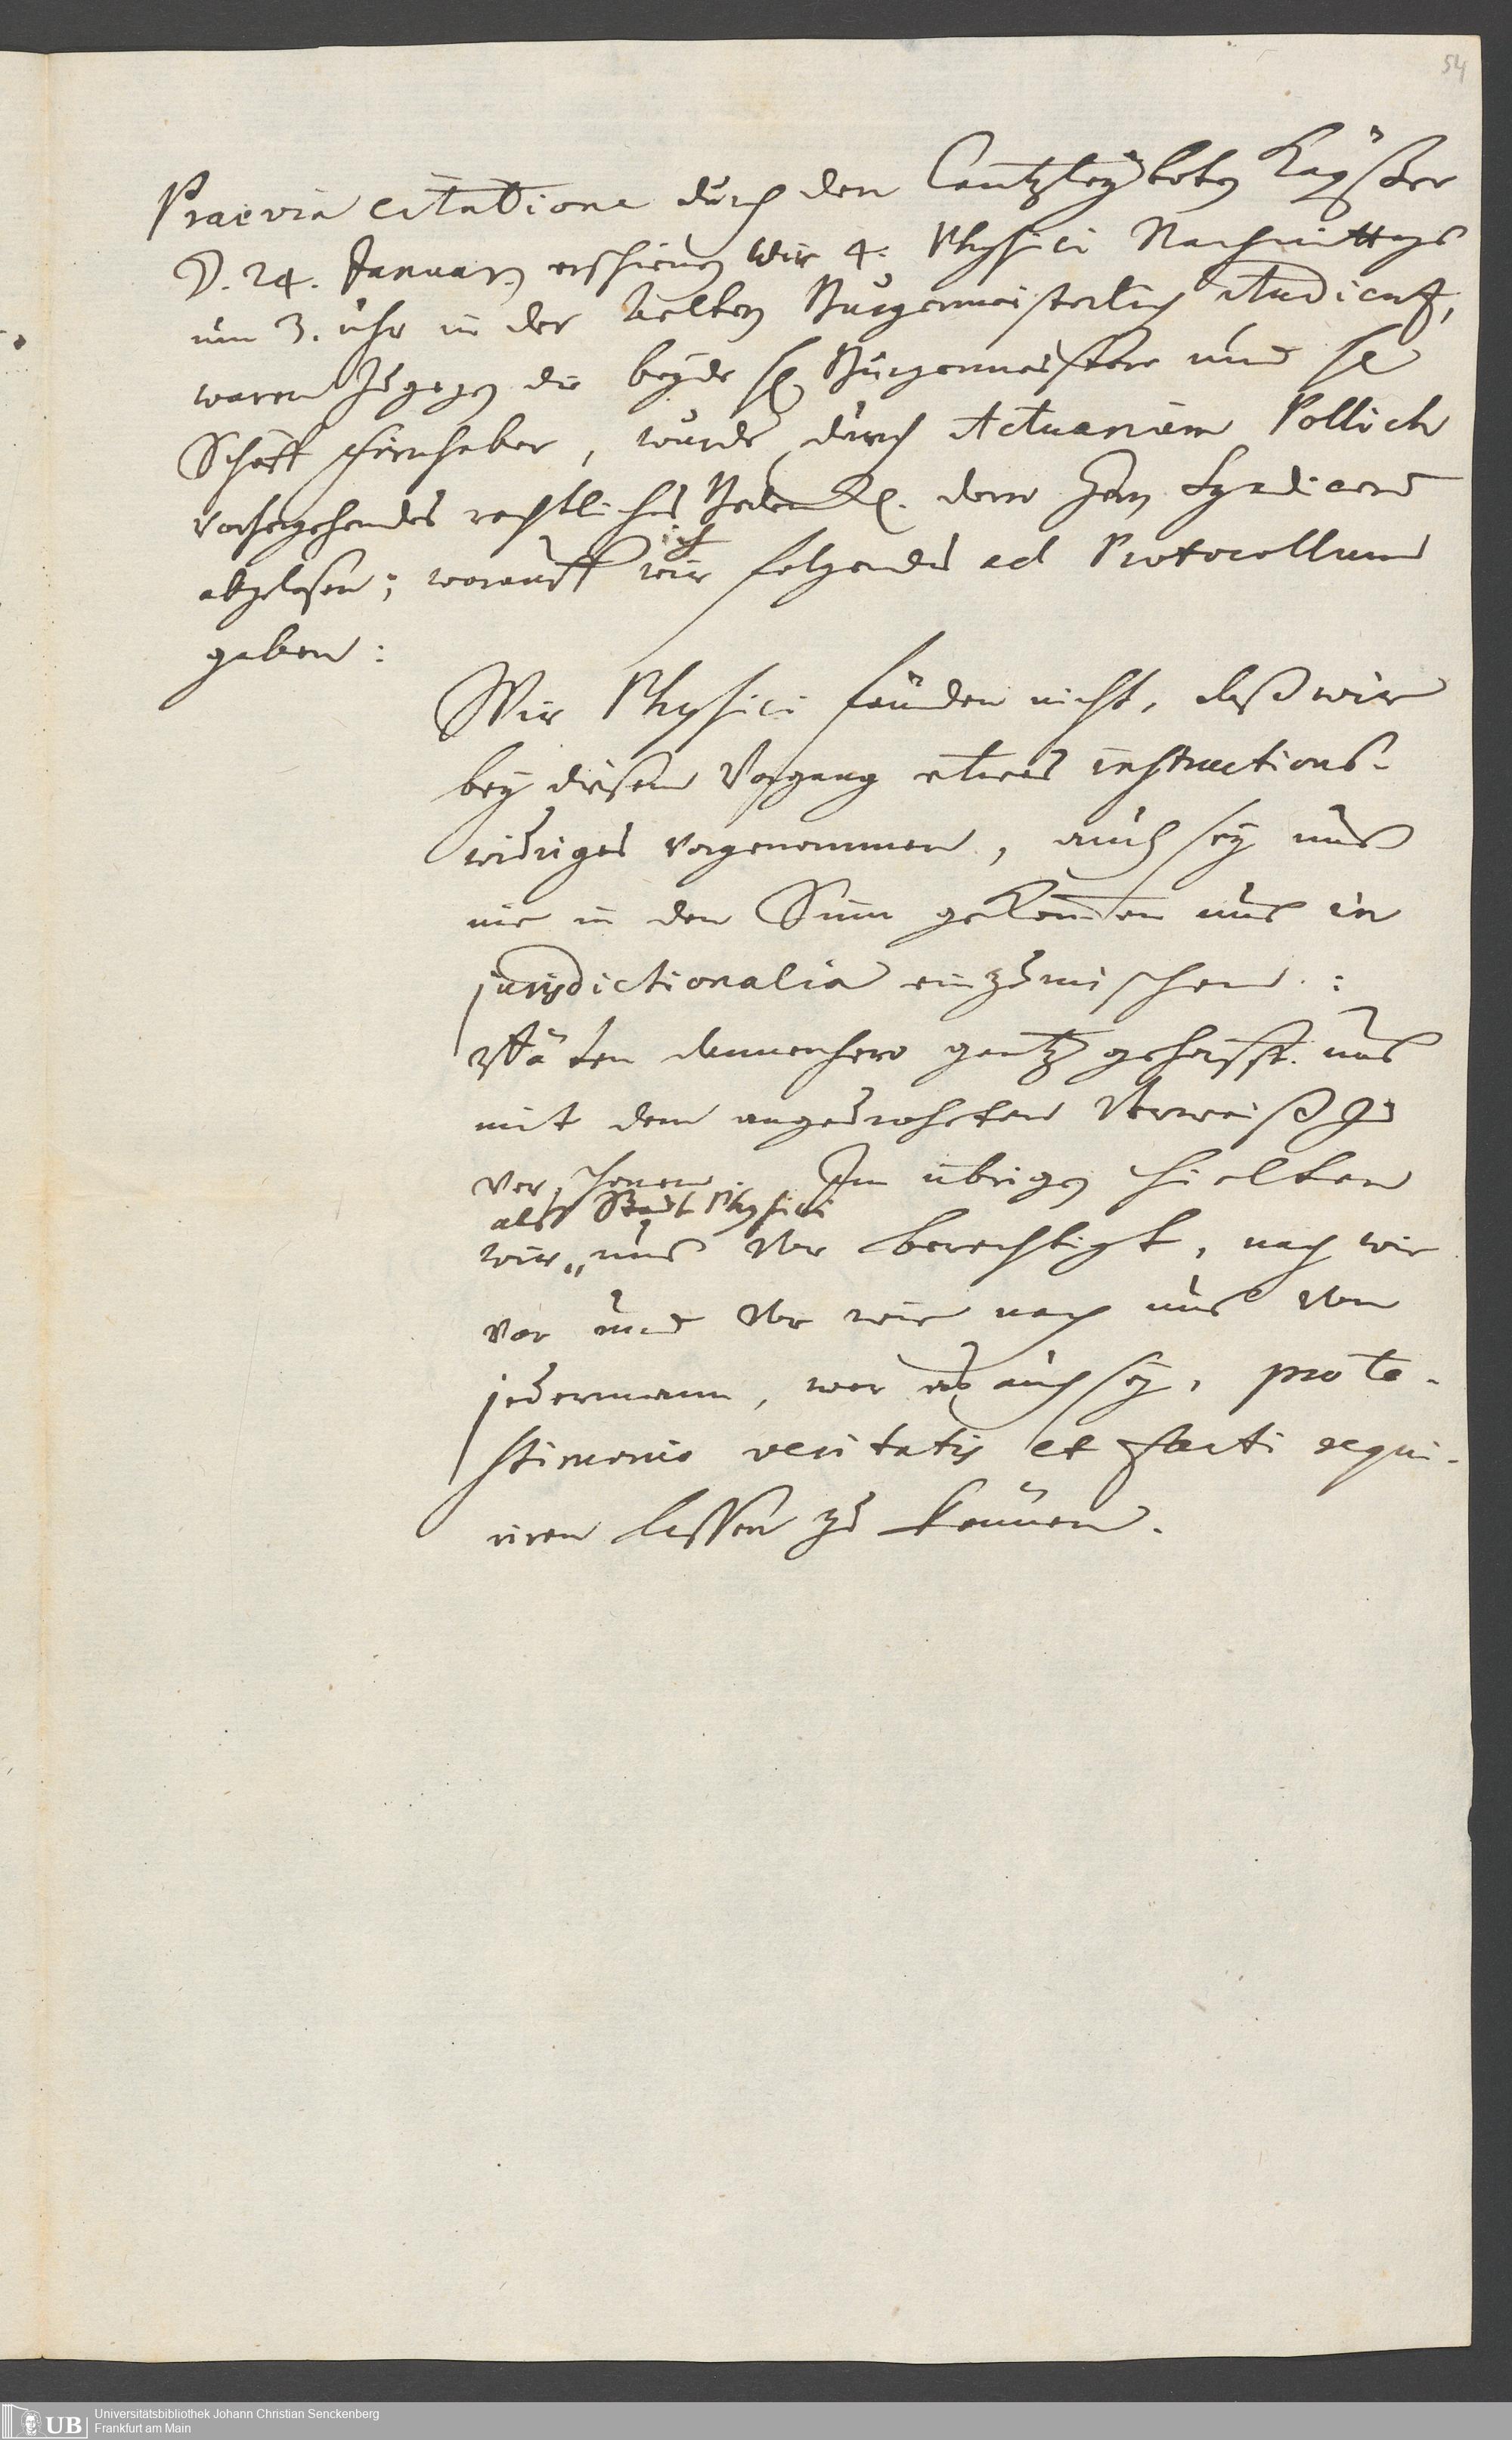 54
Praevia citatione durch den Cantzley botten Kayßer
D. 24. Januar. erschienen wir 4. Physici Nachmittags
um 3. uhr in der ältern Burgermeisterlich Audienz,
waren zugegen die beyde H Burgermeistere und H
Schöff Firnhaber, wurde durch Actuarium Pollich
vorhergehendes rechtliches Bedenken derer Herrn Syndicorum
abgelesen; worauff wir ich folgendes ad Protocollum
gaben:
Wir Physici fänden nicht, daß wir
bey diesem Vorgang etwas instructions-
widriges vorgenommen, auch sey uns
nie in den Sinn gekommen uns in
jurisdictionalia einzumischen:
thäten dannenhero gantz gehorsst. uns
mit dem angedroheten Verweiß zu
verschonen. Im übrigen hielten
als Stadt Physici
wir „ uns vor berechtigt, nach wie
vor und vor wie nach uns von
jedermann, wer es auch sey, pro te-
stimonio veritatis et facti requi-
riren lassen zu können.
UB
Universitätsbibliothek Johann Christian Senckenberg
Frankfurt am Main